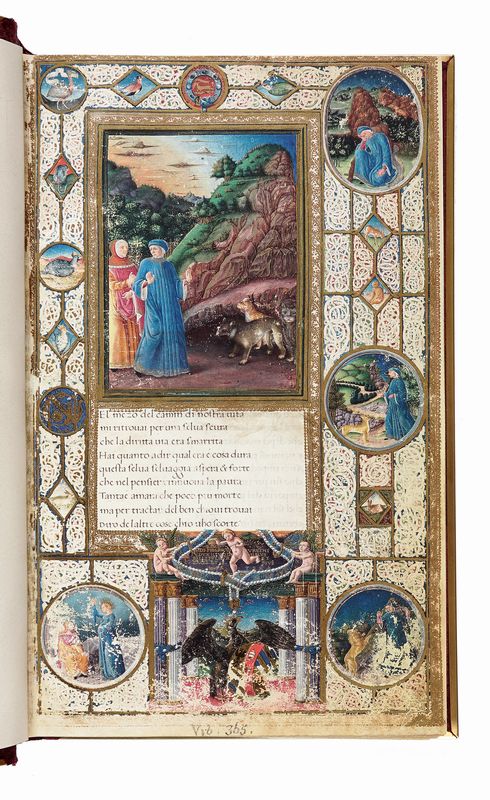 El mezo del camin di nostra uita
mi ritrouai per una selua scura
che la diricta uia era smarrita
Hai quanto adir qual era e cosa dura
questa selua seluaggia aspera & forte
che nel pensier rinuoua la paura
Tantae amara che poco piu morte
ma per tractar del ben chio ui trouai
diro de laltre cose chio uho scorte
Vrb. 365.